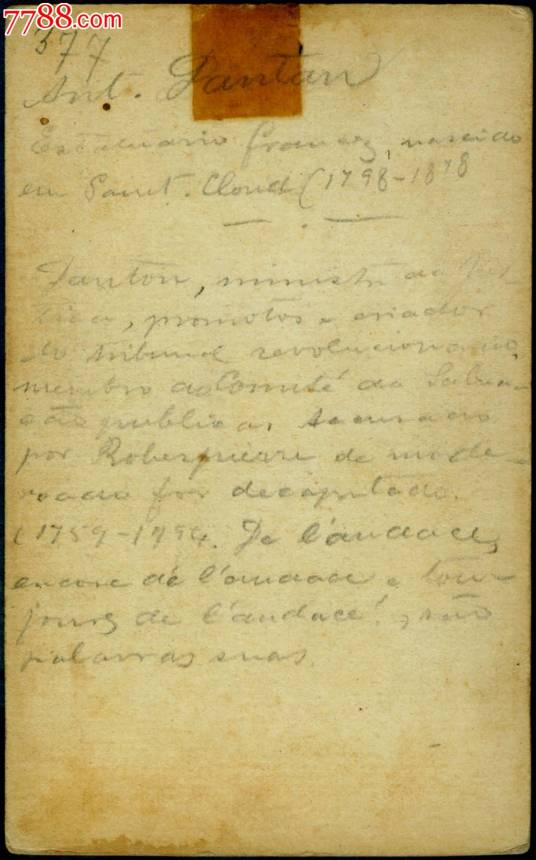 7788.com
377
Ant. Dantan
Estatuario francez, nascido
em Saint. Cloud (1798-1878
Danton, ministro da Jus-
tiça, promotor e criador
do tribunal revolucionario,
membro do Comité da Salva-
ção publica, accusado
por Robespierre de mode-
rado foi decapitado.
(1759-1794. De l'audace,
encore de l'audace e tou-
jours de l'audace!, são
palavras suas.